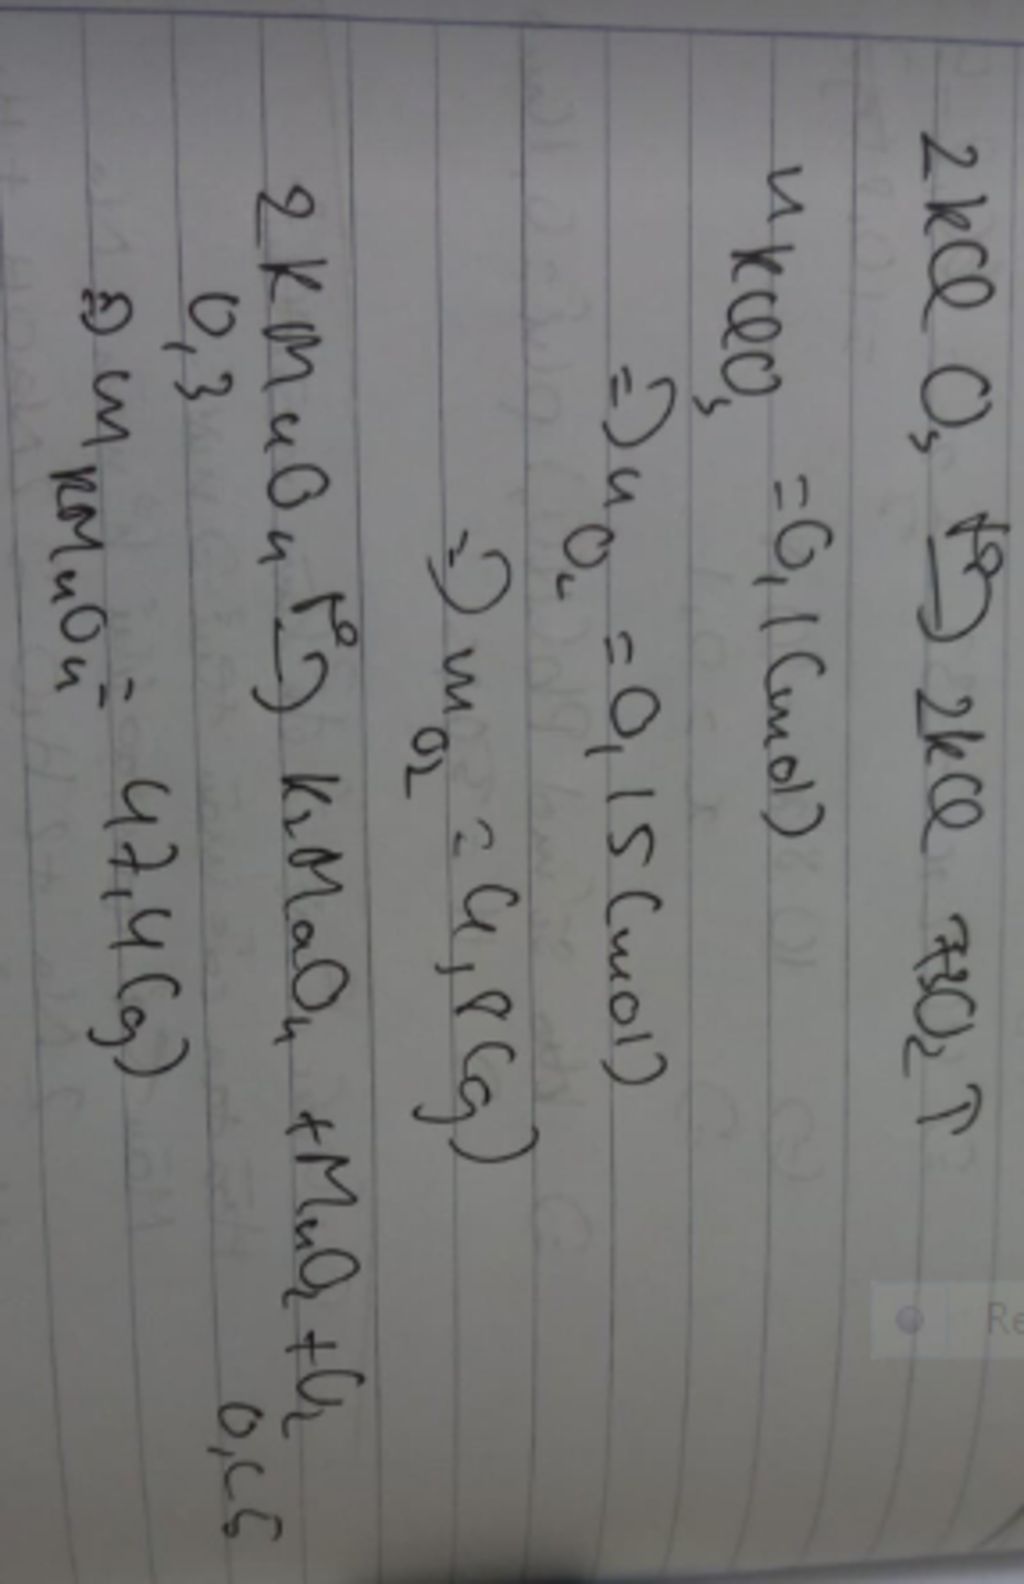 2KClO₃ t° → 2KCl + 3O₂ ↑
n KClO₃ = 0,1 (mol)
=> n O₂ = 0,15 (mol)
=> m O₂ = 4,8 (g)
2KMnO₄ t° → K₂MnO₄ + MnO₂ + O₂
0,3 0,15
=> m KMnO₄ = 47,4 (g)
Re